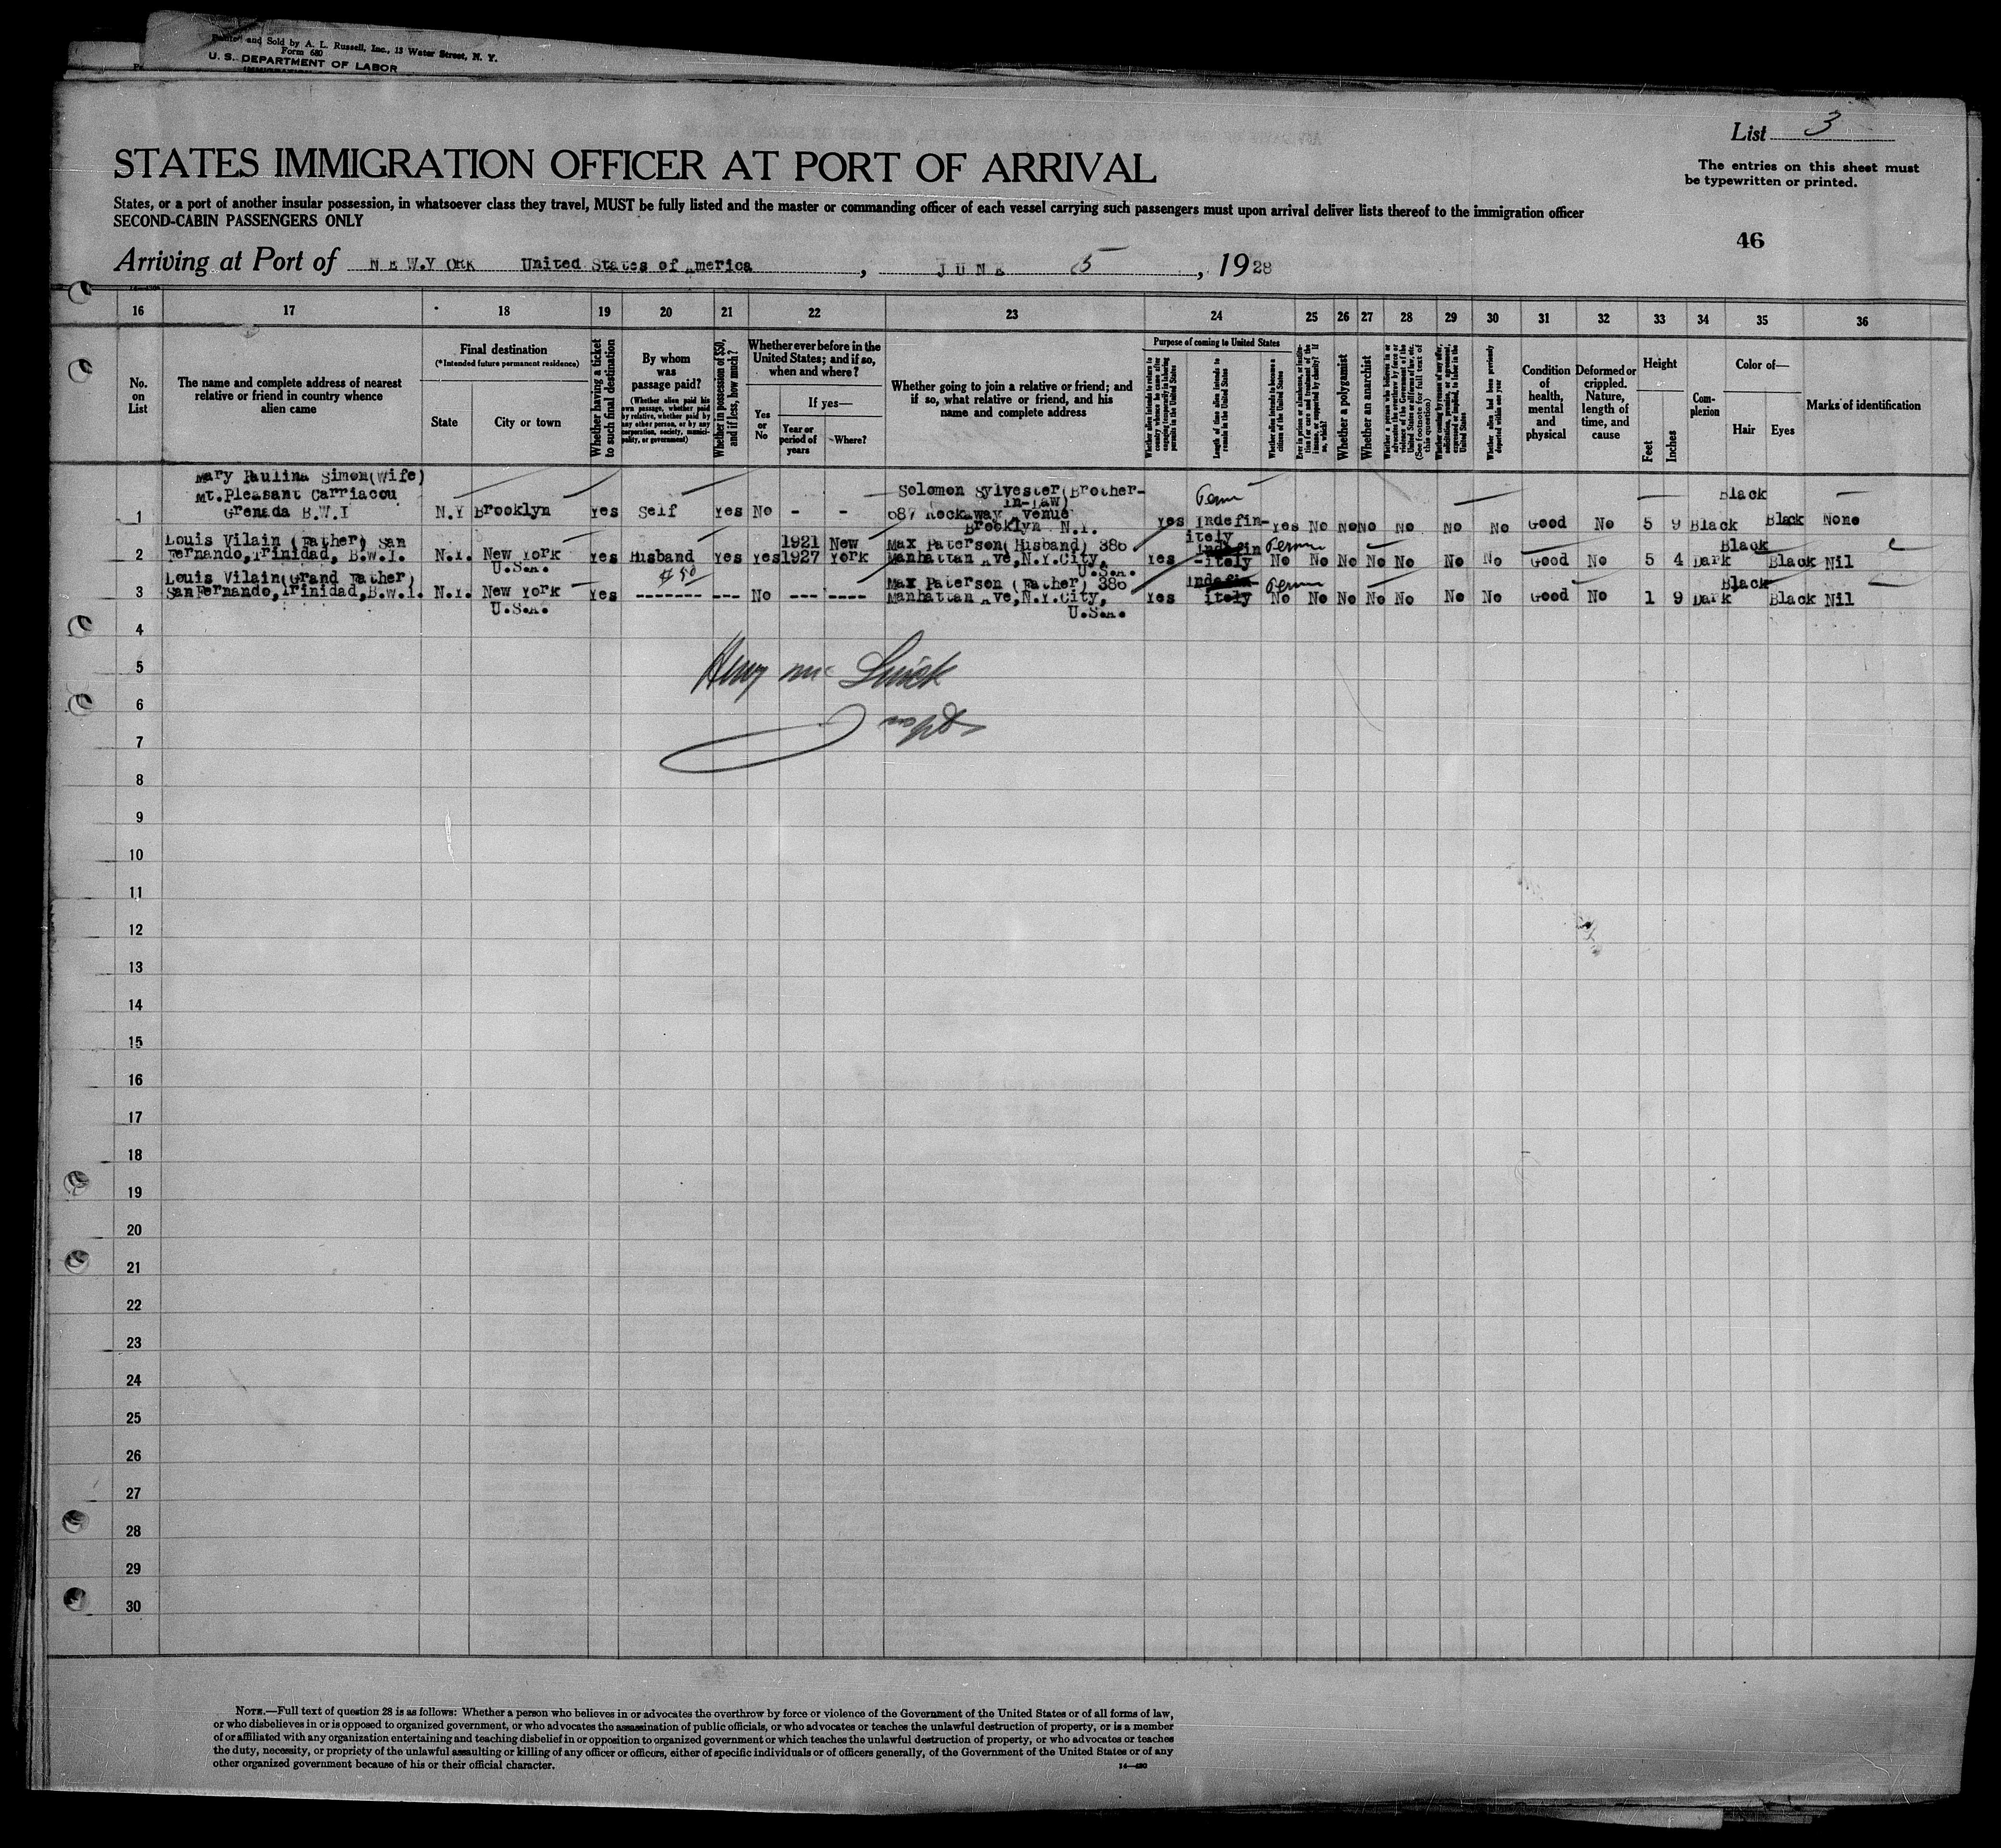 Printed and Sold by A. L. Russell, Inc., 13 Water Street, N. Y.
Form 680
U. S. DEPARTMENT OF LABOR
List 3
STATES IMMIGRATION OFFICER AT PORT OF ARRIVAL
The entries on this sheet must
be typewritten or printed.
States, or a port of another insular possession, in whatsoever class they travel, MUST be fully listed and the master or commanding officer of each vessel carrying such passengers must upon arrival deliver lists thereof to the immigration officer
SECOND-CABIN PASSENGERS ONLY
46
Arriving at Port of NEW.YORK United States of America, JUNE 5, 1928
16 17 18 19 20 21 22 23 24 25 26 27 28 29 30 31 32 33 34 35 36
No.
on
List
The name and complete address of nearest
relative or friend in country whence
alien came
Final destination
(*Intended future permanent residence)
State City or town
Whether having a ticket
to such final destination
By whom
was
passage paid?
(Whether alien paid his
own passage, whether paid
by relative, whether paid by
any other person, or by any
corporation, society, munici-
pality, or government)
Whether in possession of $50,
and if less, how much?
Whether ever before in the
United States; and if so,
when and where?
Yes
or
No
If yes—
Year or
period of
years
Where?
Whether going to join a relative or friend; and
if so, what relative or friend, and his
name and complete address
Purpose of coming to United States
Whether alien intends to return to
country whence he came after
engaging temporarily in laboring
pursuits in the United States
Length of time alien intends to
remain in the United States
Whether alien intends to become a
citizen of the United States
Ever in prison or almshouse, or institu-
tion for care and treatment of the
insane, or supported by charity? If
so, which?
Whether a polygamist
Whether an anarchist
Whether a person who believes in or
advocates the overthrow by force or
violence of the Government of the
United States or all forms of law, etc.
(See footnote for full text of
this question)
Whether coming by reason of any offer,
solicitation, promise, or agreement,
expressed or implied, to labor in the
United States
Whether alien had been previously
deported within one year
Condition
of
health,
mental
and
physical
Deformed or
crippled.
Nature,
length of
time, and
cause
Height
Feet
Inches
Com-
plexion
Color of—
Hair Eyes
Marks of identification
Mary Paulina Simon(Wife)
Mt.Pleasant Carriacou
Grenada B.W.I
1 N.Y Brooklyn Yes Self Yes No - -
Solomon Sylvester(Brother-
in-law)
687 Rockaway Avenue
Brooklyn N.Y.
Yes Perm Indefin-
itely Yes No No No No No No Good No 5 9 Black Black Black None
Louis Vilain (Father) San
2 Fernando,Trinidad, B.W.I. N.Y. New York
U.S.A. Yes Husband Yes Yes 1921
1927 New
York
Max Paterson(Husband) 380
Manhattan Ave,N.Y.City,
U.S.A.
Yes Indefin
-itely Perm No No No No No No No Good No 5 4 Dark Black Black Nil
Louis Vilain(Grand Father)
$50
3 San Fernando,Trinidad,B.W.I. N.Y. New York
U.S.A. Yes ------- --- No --- ----
Max Paterson (Father) 380
Manhattan Ave,N.Y.City,
U.S.A.
Yes Indefin-
itely Perm No No No No No No No Good No 1 9 Dark Black Black Nil
4
5
6
7
8
9
10
11
12
13
14
15
16
17
18
19
20
21
22
23
24
25
26
27
28
29
30
NOTE.—Full text of question 28 is as follows: Whether a person who believes in or advocates the overthrow by force or violence of the Government of the United States or of all forms of law,
or who disbelieves in or is opposed to organized government, or who advocates the assassination of public officials, or who advocates or teaches the unlawful destruction of property, or is a member
of or affiliated with any organization entertaining and teaching disbelief in or opposition to organized government or which teaches the unlawful destruction of property, or who advocates or teaches
the duty, necessity, or propriety of the unlawful assaulting or killing of any officer or officers, either of specific individuals or of officers generally, of the Government of the United States or of any
other organized government because of his or their official character.
14—430